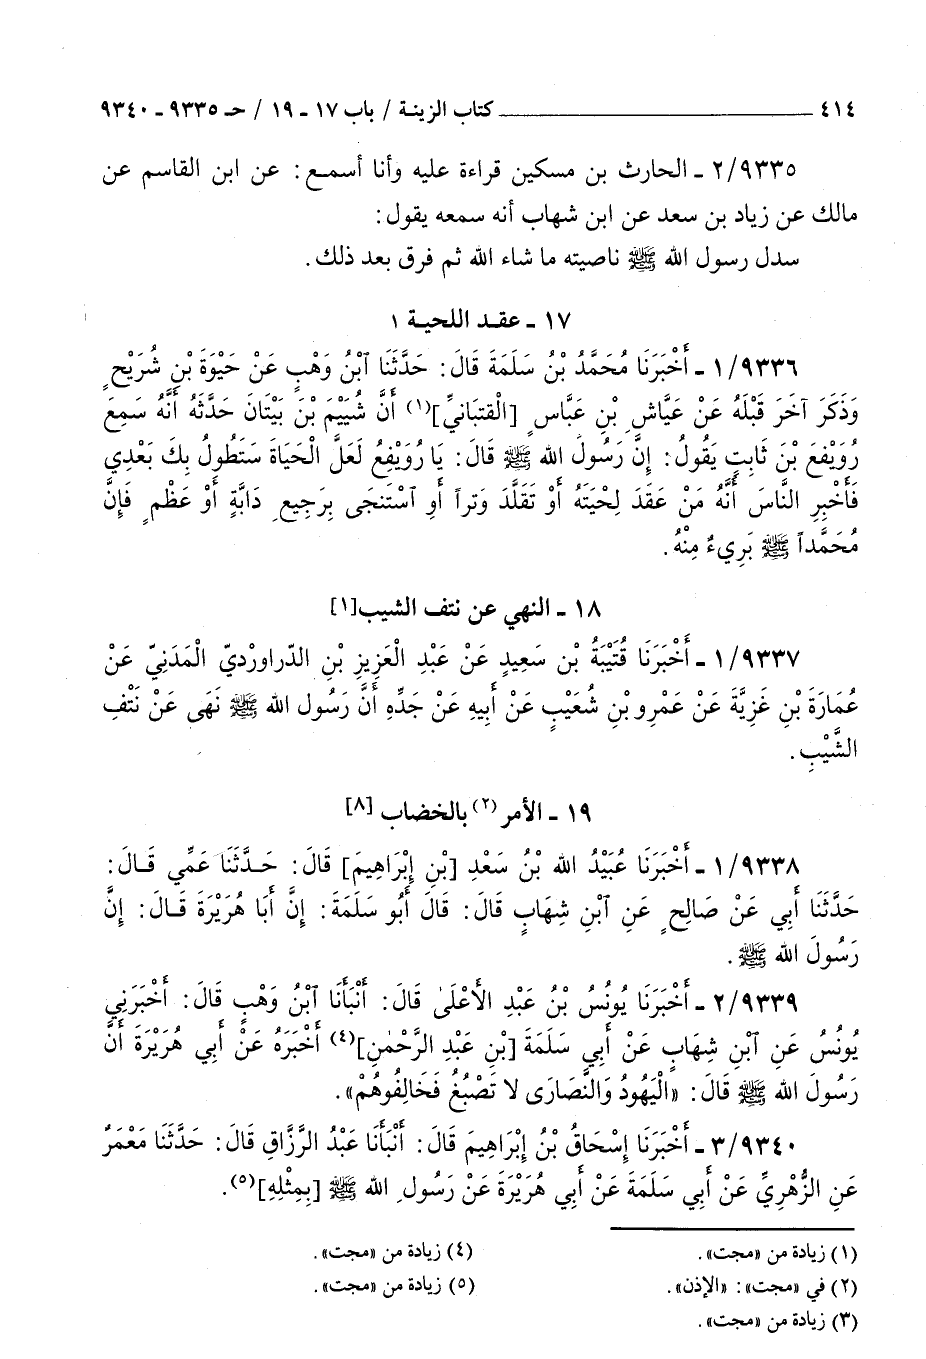 ٤١٤ ــــــــــ كتاب الزينة / باب ١٧ - ١٩ / حـ ٩٣٣٥ - ٩٣٤٠
٢/٩٣٣٥ - الحارث بن مسكين قراءة عليه وأنا أسمع: عن ابن القاسم عن
مالك عن زياد بن سعد عن ابن شهاب أنه سمعه يقول:
سدل رسول الله ﷺ ناصيته ما شاء الله ثم فرق بعد ذلك.
١٧ - عقد اللحية ١
١/٩٣٣٦ - أَخْبَرَنَا مُحَمَّدُ بْنُ سَلَمَةَ قَالَ: حَدَّثَنَا ٱبْنُ وَهْبٍ عَنْ حَيْوَةَ بْنِ شُرَيْحٍ
وَذَكَرَ آخَرَ قَبْلَهُ عَنْ عَيَّاشِ بْنِ عَبَّاسٍ [الْقِتبَانيِّ](١) أَنَّ شُيَيْمَ بْنَ بَيْتَانَ حَدَّثَهُ أَنَّهُ سَمِعَ
رُوَيْفِعَ بْنَ ثَابِتٍ يَقُولُ: إِنَّ رَسُولَ الله ﷺ قَالَ: يَا رُوَيْفِعُ لَعَلَّ الْحَيَاةَ سَتَطُولُ بِكَ بَعْدِي
فَأَخْبِرِ النَّاسَ أَنَّهُ مَنْ عَقَدَ لِحْيَتَهُ أَوْ تَقَلَّدَ وَتراً أَوِ ٱسْتَنجَى بِرَجِيعِ دَابَّةٍ أَوْ عَظْمٍ فَإِنَّ
مُحَمَّداً ﷺ بَرِيءٌ مِنْهُ.
١٨ - النهي عن نتف الشيب[١]
١/٩٣٣٧ - أَخْبَرَنَا قُتَيْبَةُ بْن سَعِيدٍ عَنْ عَبْدِ الْعَزِيزِ بْنِ الدّراورْديّ الْمَدَنِيّ عَنْ
عُمَارَةَ بْنِ غَزِيَّةَ عَنْ عَمْرِو بْنِ شُعَيْبٍ عَنْ أَبِيهِ عَنْ جَدِّهِ أَنَّ رَسُولَ الله ﷺ نَهَى عَنْ نَتْفِ
الشَّيْبِ.
١٩ - الأمر(٢) بالخضاب [٨]
١/٩٣٣٨ - أَخْبَرَنَا عُبَيْدُ الله بْنُ سَعْدِ [بْنِ إِبْرَاهِيمَ] قَالَ: حَدَّثَنَا عَمِّي قَالَ:
حَدَّثَنَا أَبِي عَنْ صَالِحٍ عَنِ ٱبْنِ شِهَابٍ قَالَ: قَالَ أَبُو سَلَمَةَ: إِنَّ أَبَا هُرَيْرَةَ قَالَ: إِنَّ
رَسُولَ الله ﷺ.
٢/٩٣٣٩ - أَخْبَرَنَا يُونُسُ بْنُ عَبْدِ الأَعْلَىٰ قَالَ: أَنْبَأَنَا ٱبْنُ وَهْبٍ قَالَ: أَخْبَرَنِي
يُونُسُ عَنِ ٱبْنِ شِهَابٍ عَنْ أَبِي سَلَمَةَ [بْنِ عَبْدِ الرَّحْمٰنِ](٤) أَخْبَرَهُ عَنْ أَبِي هُرَيْرَةَ أَنَّ
رَسُولَ الله ﷺ قَالَ: «الْيَهُودُ وَالنَّصَارَى لا تَصْبُغُ فَخَالِفُوهُمْ».
٣/٩٣٤٠ - أَخْبَرَنَا إِسْحَاقُ بْنُ إِبْرَاهِيمَ قَالَ: أَنْبَأَنَا عَبْدُ الرَّزَّاقِ قَالَ: حَدَّثَنَا مَعْمَرٌ
عَنِ الزُّهْرِيِّ عَنْ أَبِي سَلَمَةَ عَنْ أَبِي هُرَيْرَةَ عَنْ رَسُولِ الله ﷺ [بِمِثْلِهِ](٥).
(١) زيادة من «مجت».
(٢) في «مجت»: «الإذن».
(٣) زيادة من «مجت».
(٤) زيادة من «مجت».
(٥) زيادة من «مجت».